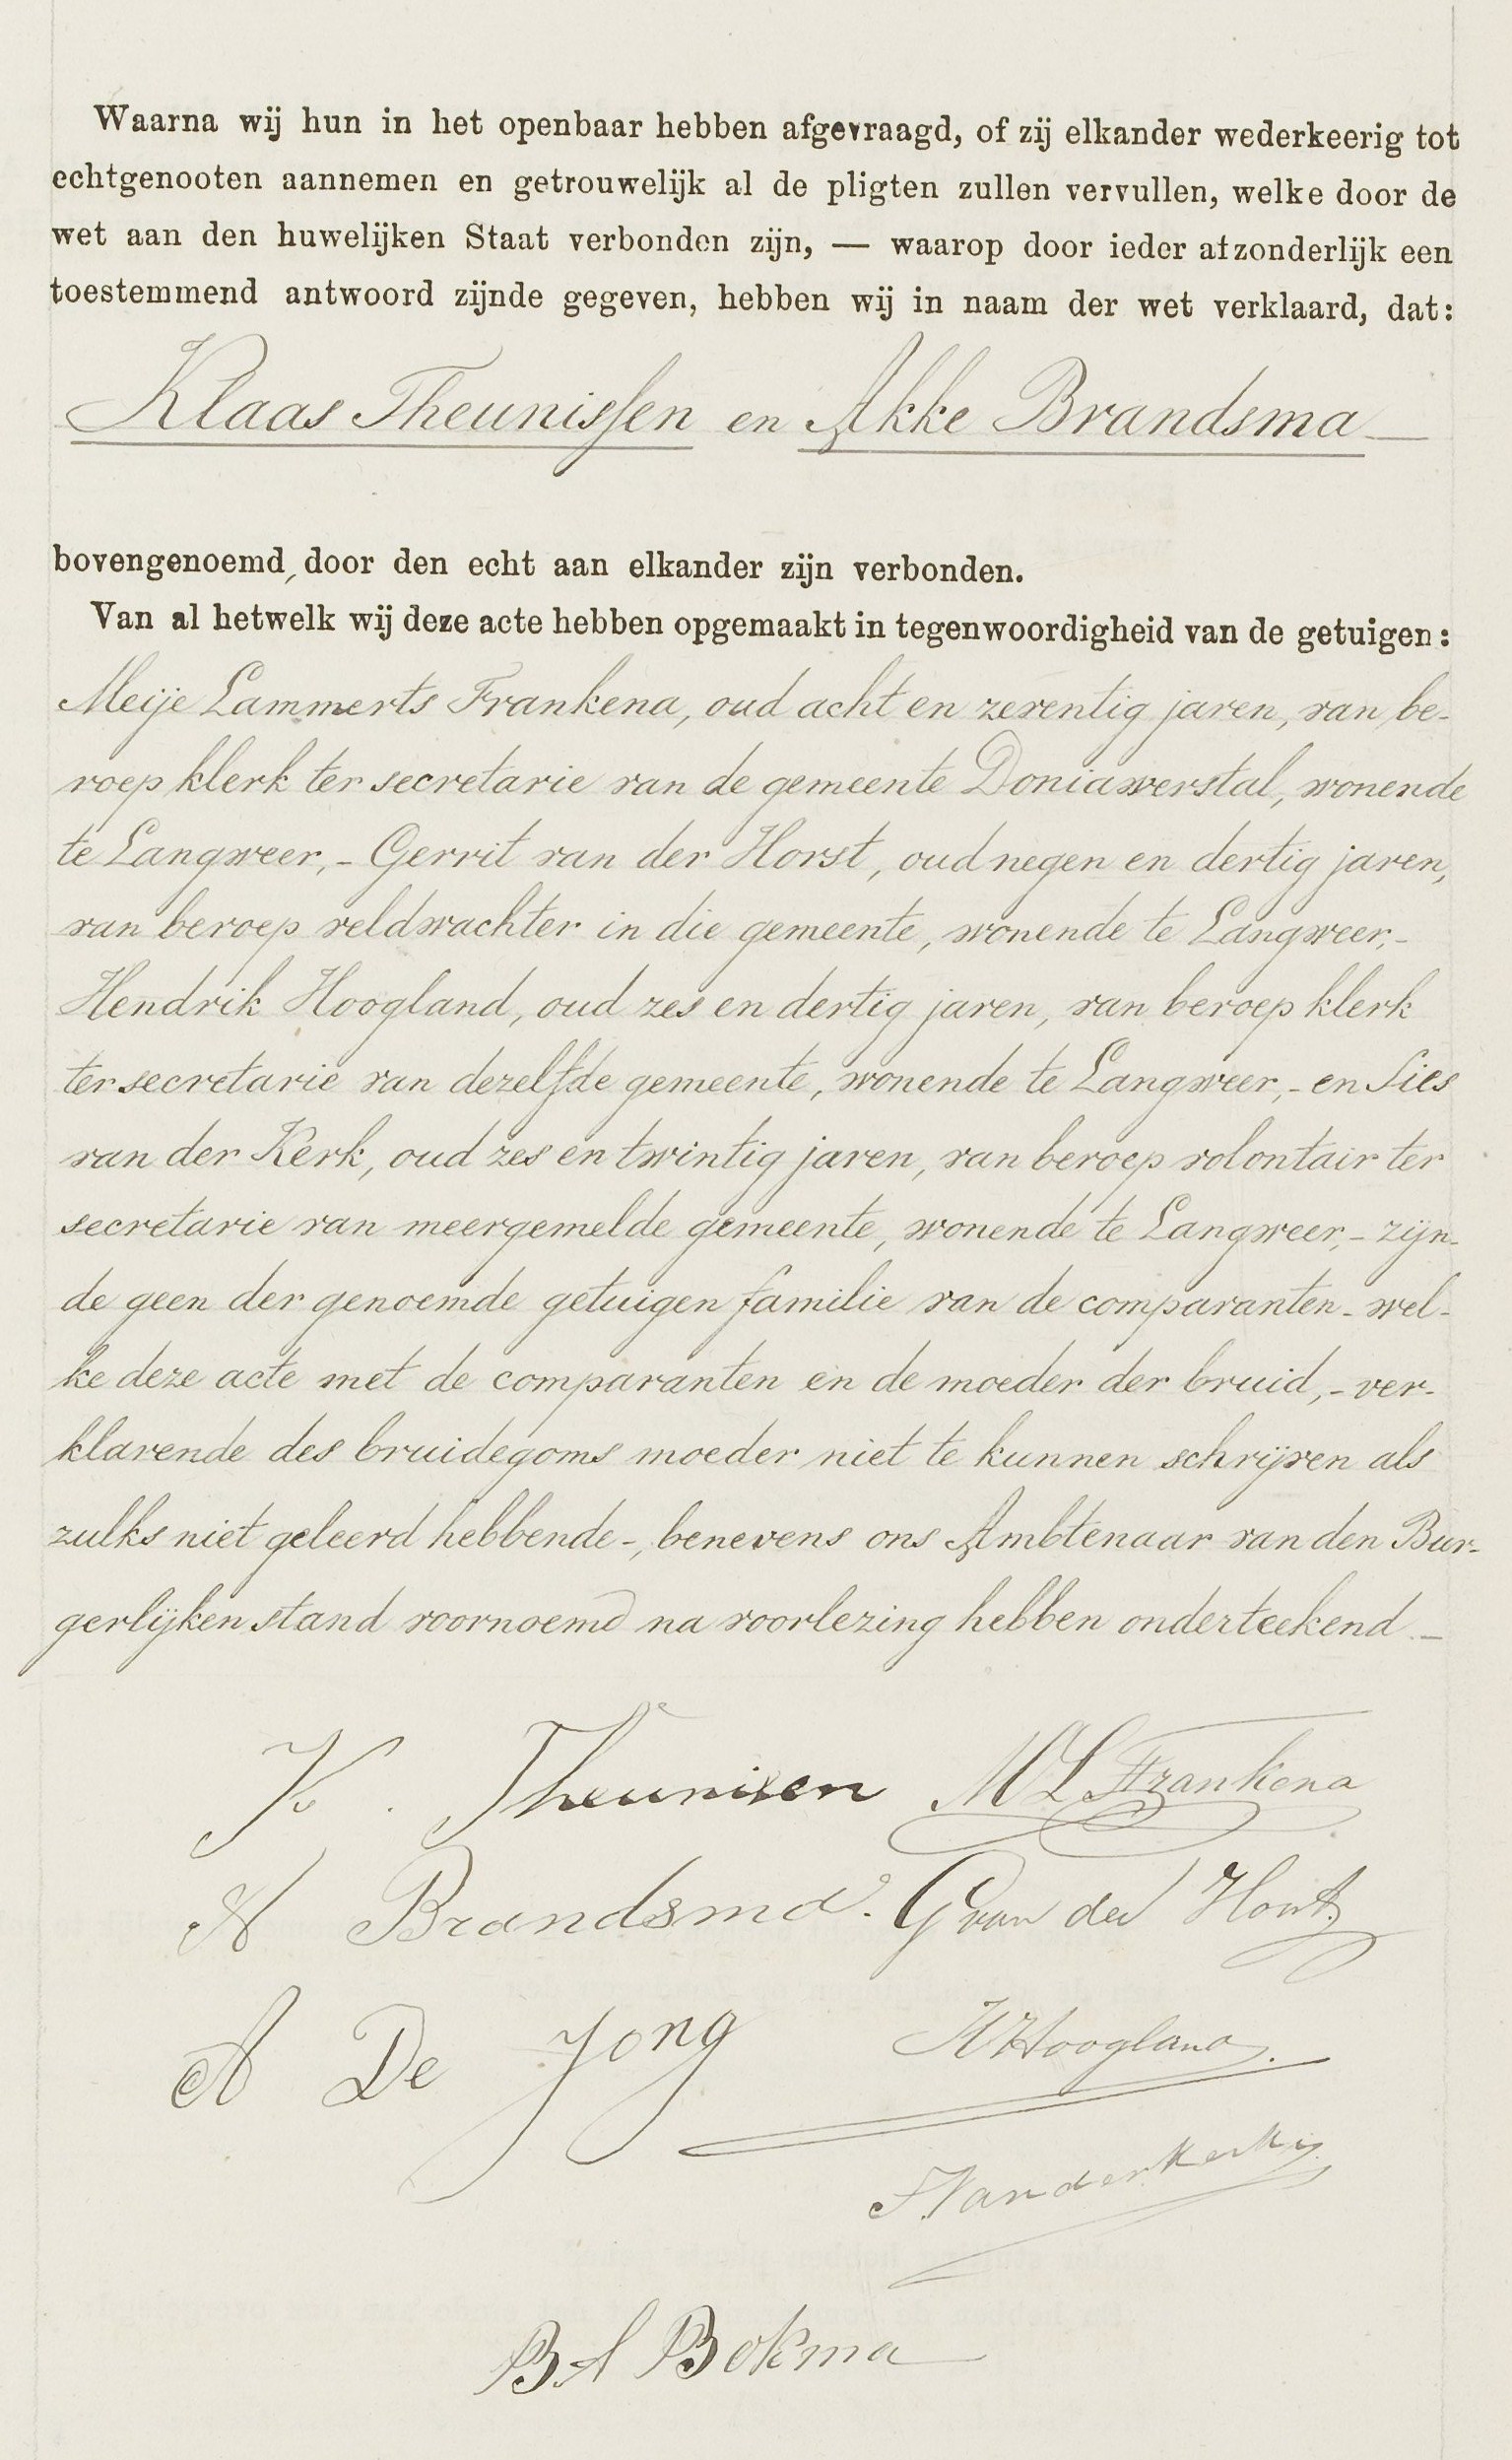 Waarna wij hun in het openbaar hebben afgevraagd, of zij elkander wederkeerig tot
echtgenooten aannemen en getrouwelijk al de pligten zullen vervullen, welke door de
wet aan den huwelijken Staat verbonden zijn, — waarop door ieder afzonderlijk een
toestemmend antwoord zijnde gegeven, hebben wij in naam der wet verklaard, dat:
Klaas Theunissen en Akke Brandsma —
bovengenoemd, door den echt aan elkander zijn verbonden.
Van al hetwelk wij deze acte hebben opgemaakt in tegenwoordigheid van de getuigen:
Meije Lammerts Frankena, oud acht en zeventig jaren, van be-
roep klerk ter secretarie van de gemeente Doniawerstal, wonende
te Langweer, - Gerrit van der Horst, oud negen en dertig jaren,
van beroep veldwachter in die gemeente, wonende te Langweer, -
Hendrik Hoogland, oud zes en dertig jaren, van beroep klerk
ter secretarie van dezelfde gemeente, wonende te Langweer, - en Sies
van der Kerk, oud zes en twintig jaren, van beroep volontair ter
secretarie van meergemelde gemeente, wonende te Langweer, - zijn-
de geen der genoemde getuigen familie van de comparanten - wel-
ke deze acte met de comparanten en de moeder der bruid, - ver-
klarende des bruidegoms moeder niet te kunnen schrijven als
zulks niet geleerd hebbende -, benevens ons Ambtenaar van den Bur-
gerlijken stand voornoemd na voorlezing hebben onderteekend —
K. Theunissen M L Frankena
A Brandsma. G van der Horst
A De Jong H Hoogland.
S van der Kerk
B A Bokma